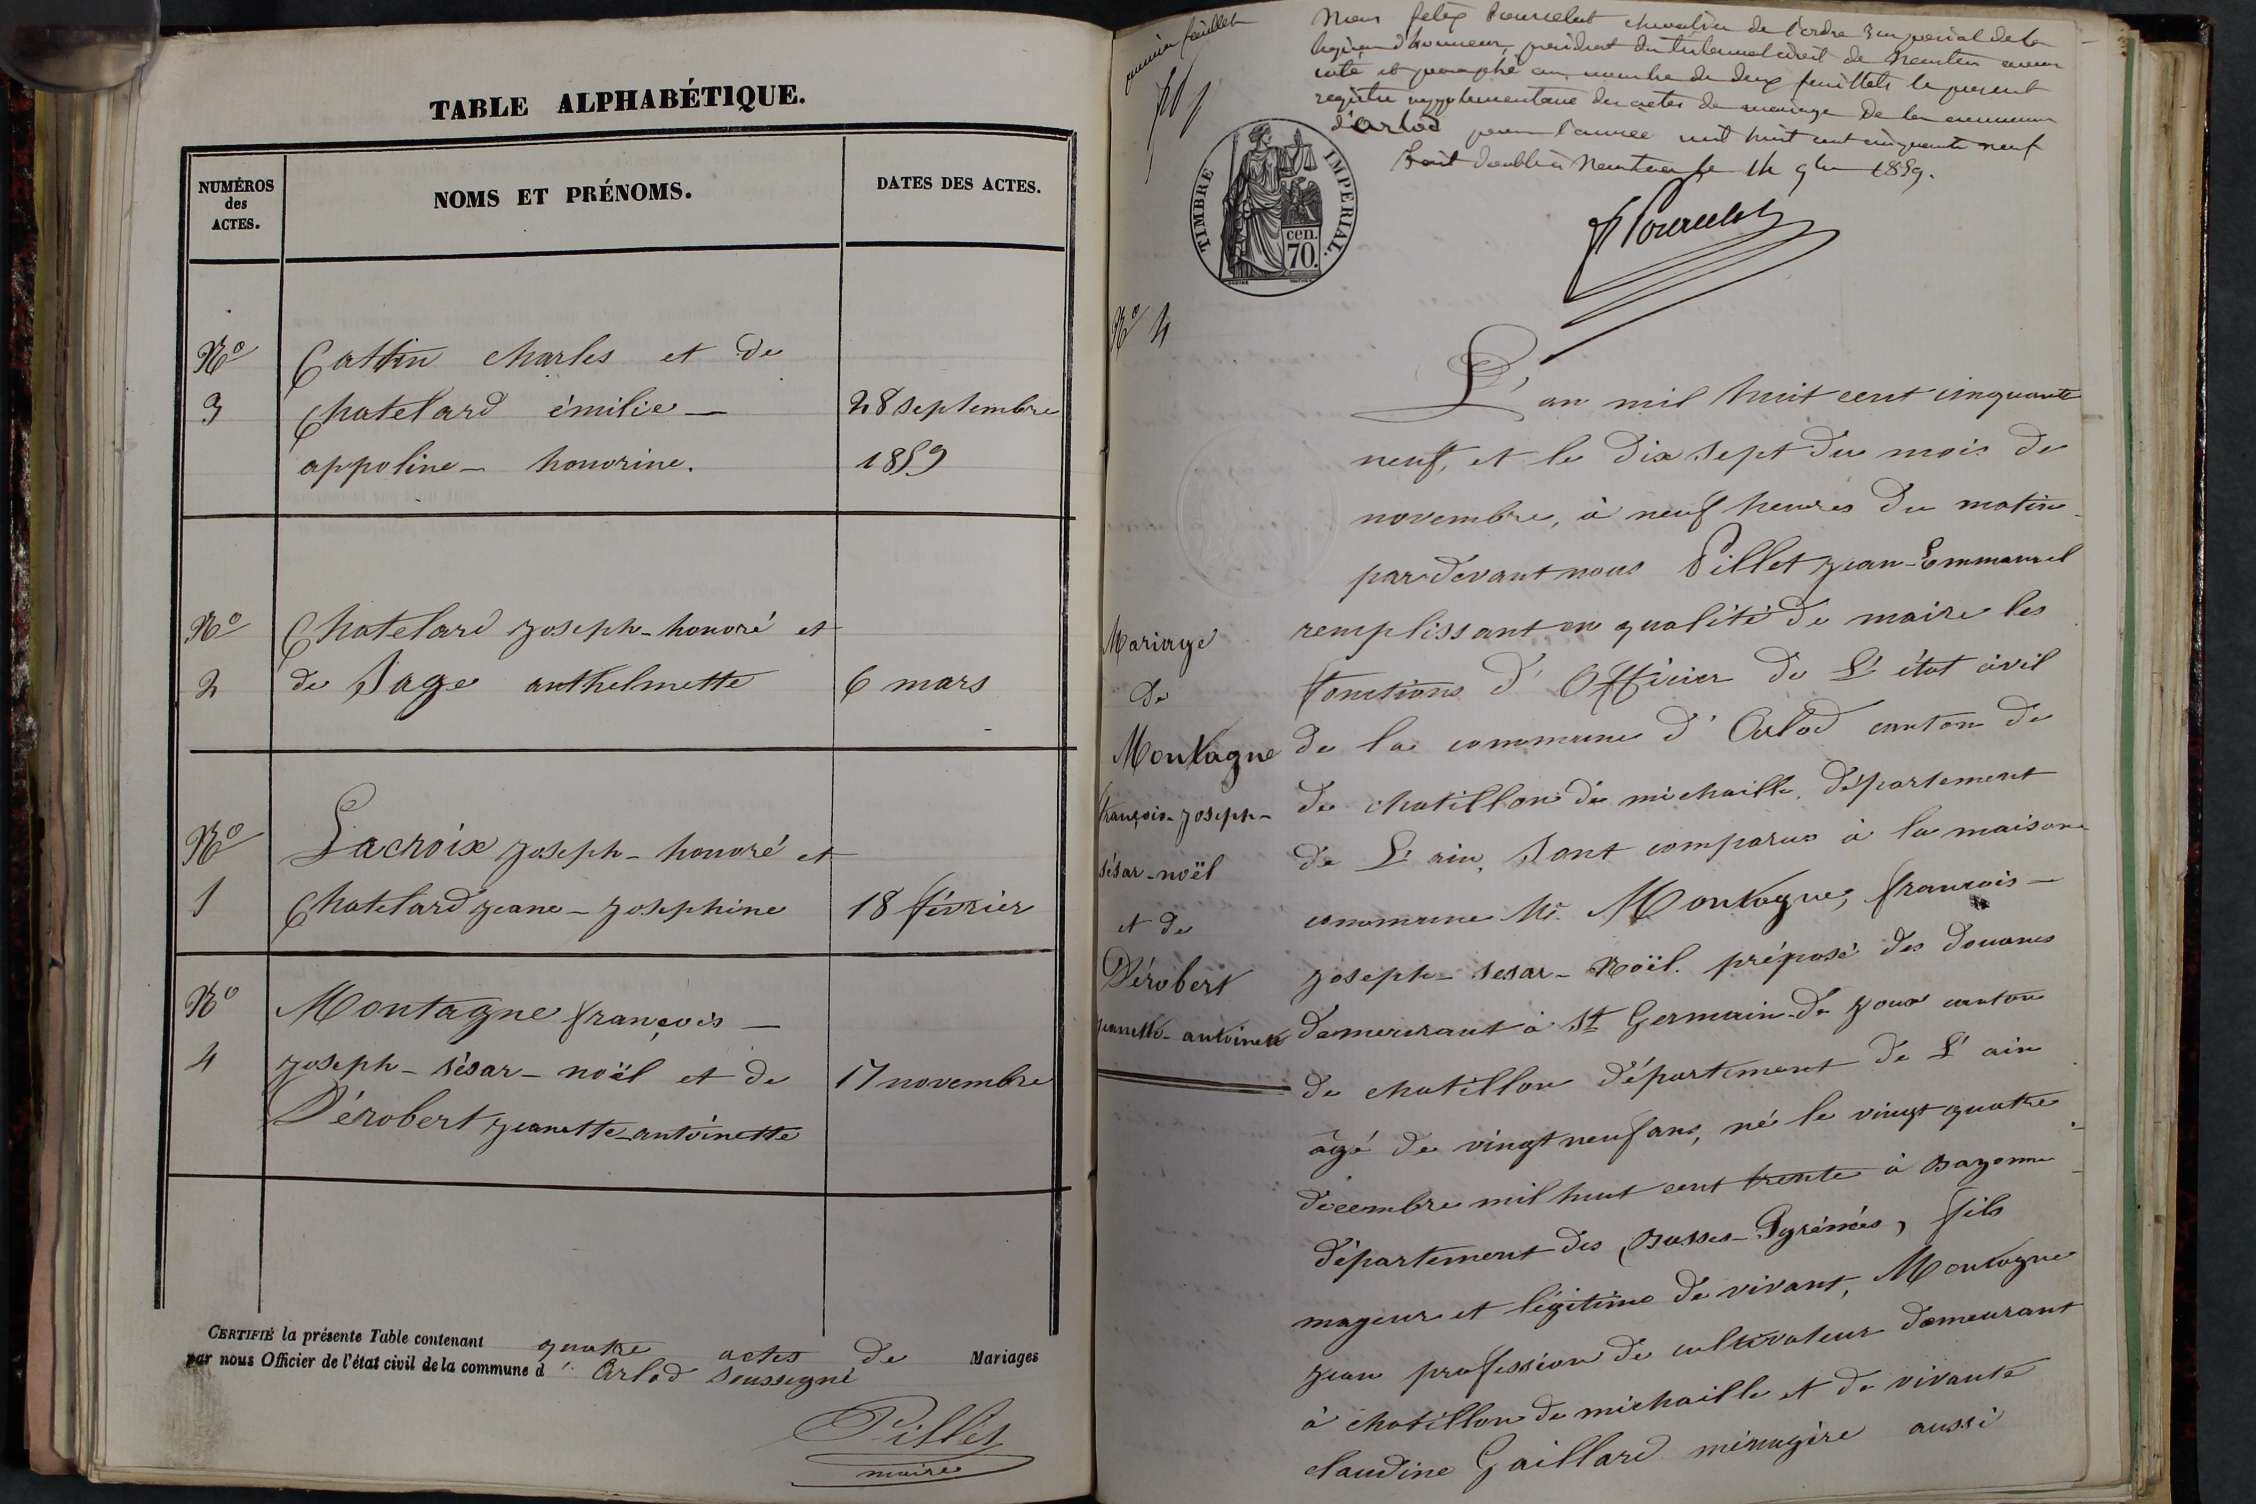 TABLE ALPHABÉTIQUE.
NUMÉROS
des
ACTES.
NOMS ET PRÉNOMS.
DATES DES ACTES.
No
3
Cattin charles et de
chatelard émilie
appoline honorine.
28 septembre
1859
No
2
Chatelard joseph-honoré et
de Sage anthelmette
6 mars
No
1
Lacroix joseph-honoré et
Chatelard jeane-josephine
18 février
No
4
Montagne françois
joseph-sésar-noël et de
Dérobert jeanette antoinette
17 novembre
CERTIFIÉ la présente Table contenant quatre actes de Mariages
par nous Officier de l'état civil de la commune d' Arlod soussigné
Pillet
maire
premier feuillet
Nous felix Pourcelot chevalier de l'ordre impérial de la
légion d'honneur, président du tribunal civil de Nantua avons
coté et paraphé au nombre de deux feuillets le présent
registre supplémentaire des actes de mariage de la commune
d'Arlod pour l'année mil huit cent cinquante neuf
fait double à Nantua le 14 9bre 1859.
Pourcelot
TIMBRE IMPÉRIAL.
cen.
70.
No 4
Mariage
de
Montagne
françois-joseph-
sésar-noël
et de
Dérobert
jeanette-antoinette
L'an mil huit cent cinquante
neuf, et le dix sept du mois de
novembre, à neuf heures du matin
pardevant nous Pillet jean-Emmanuel
remplissant en qualité de maire les
fonctions d'Officier de L'état civil
de la commune d'Arlod canton de
de chatillon de michaille, département
de L'ain, Sont comparus à la maison
commune Mr. Montagne, francois-
joseph-sesar-Noël. préposé des douanes
demeurant à St Germain-de joux canton
de chatillon département de L'ain
âgé de vingt neuf ans, né le vingt quatre
décembre mil huit cent trente à Bayonne
département des Basses-Pyrénées, fils
majeur et légitime de vivant, Montagne
jean profession de cultivateur demeurant
à chatillon de michaille et de vivante
claudine Gaillard ménagère aussi